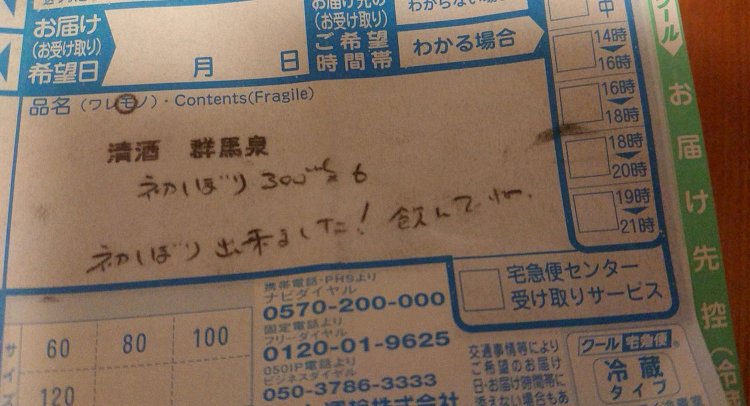 お届け
(お受け取り)
希望日
月 日
お届け先の
(お受け取り)
ご希望
時間帯
わからない場合
わかる場合
中
14時
16時
16時
18時
18時
20時
19時
21時
品名(ワレモノ)・Contents(Fragile)
清酒 群馬泉
初しぼり 300
初しぼり出来ました! 飲んでね。
宅急便センター
受け取りサービス
携帯電話・PHSより
ナビダイヤル
0570-200-000
固定電話より
フリーダイヤル
0120-01-9625
050IP電話より
ビジネスダイヤル
050-3786-3333
サイズ
60 80 100
120
交通事情等により
ご希望のお届け
日・お届け時間帯に
添えない場合もあ
クール宅急便
冷蔵
タイプ
クール
お届け先控